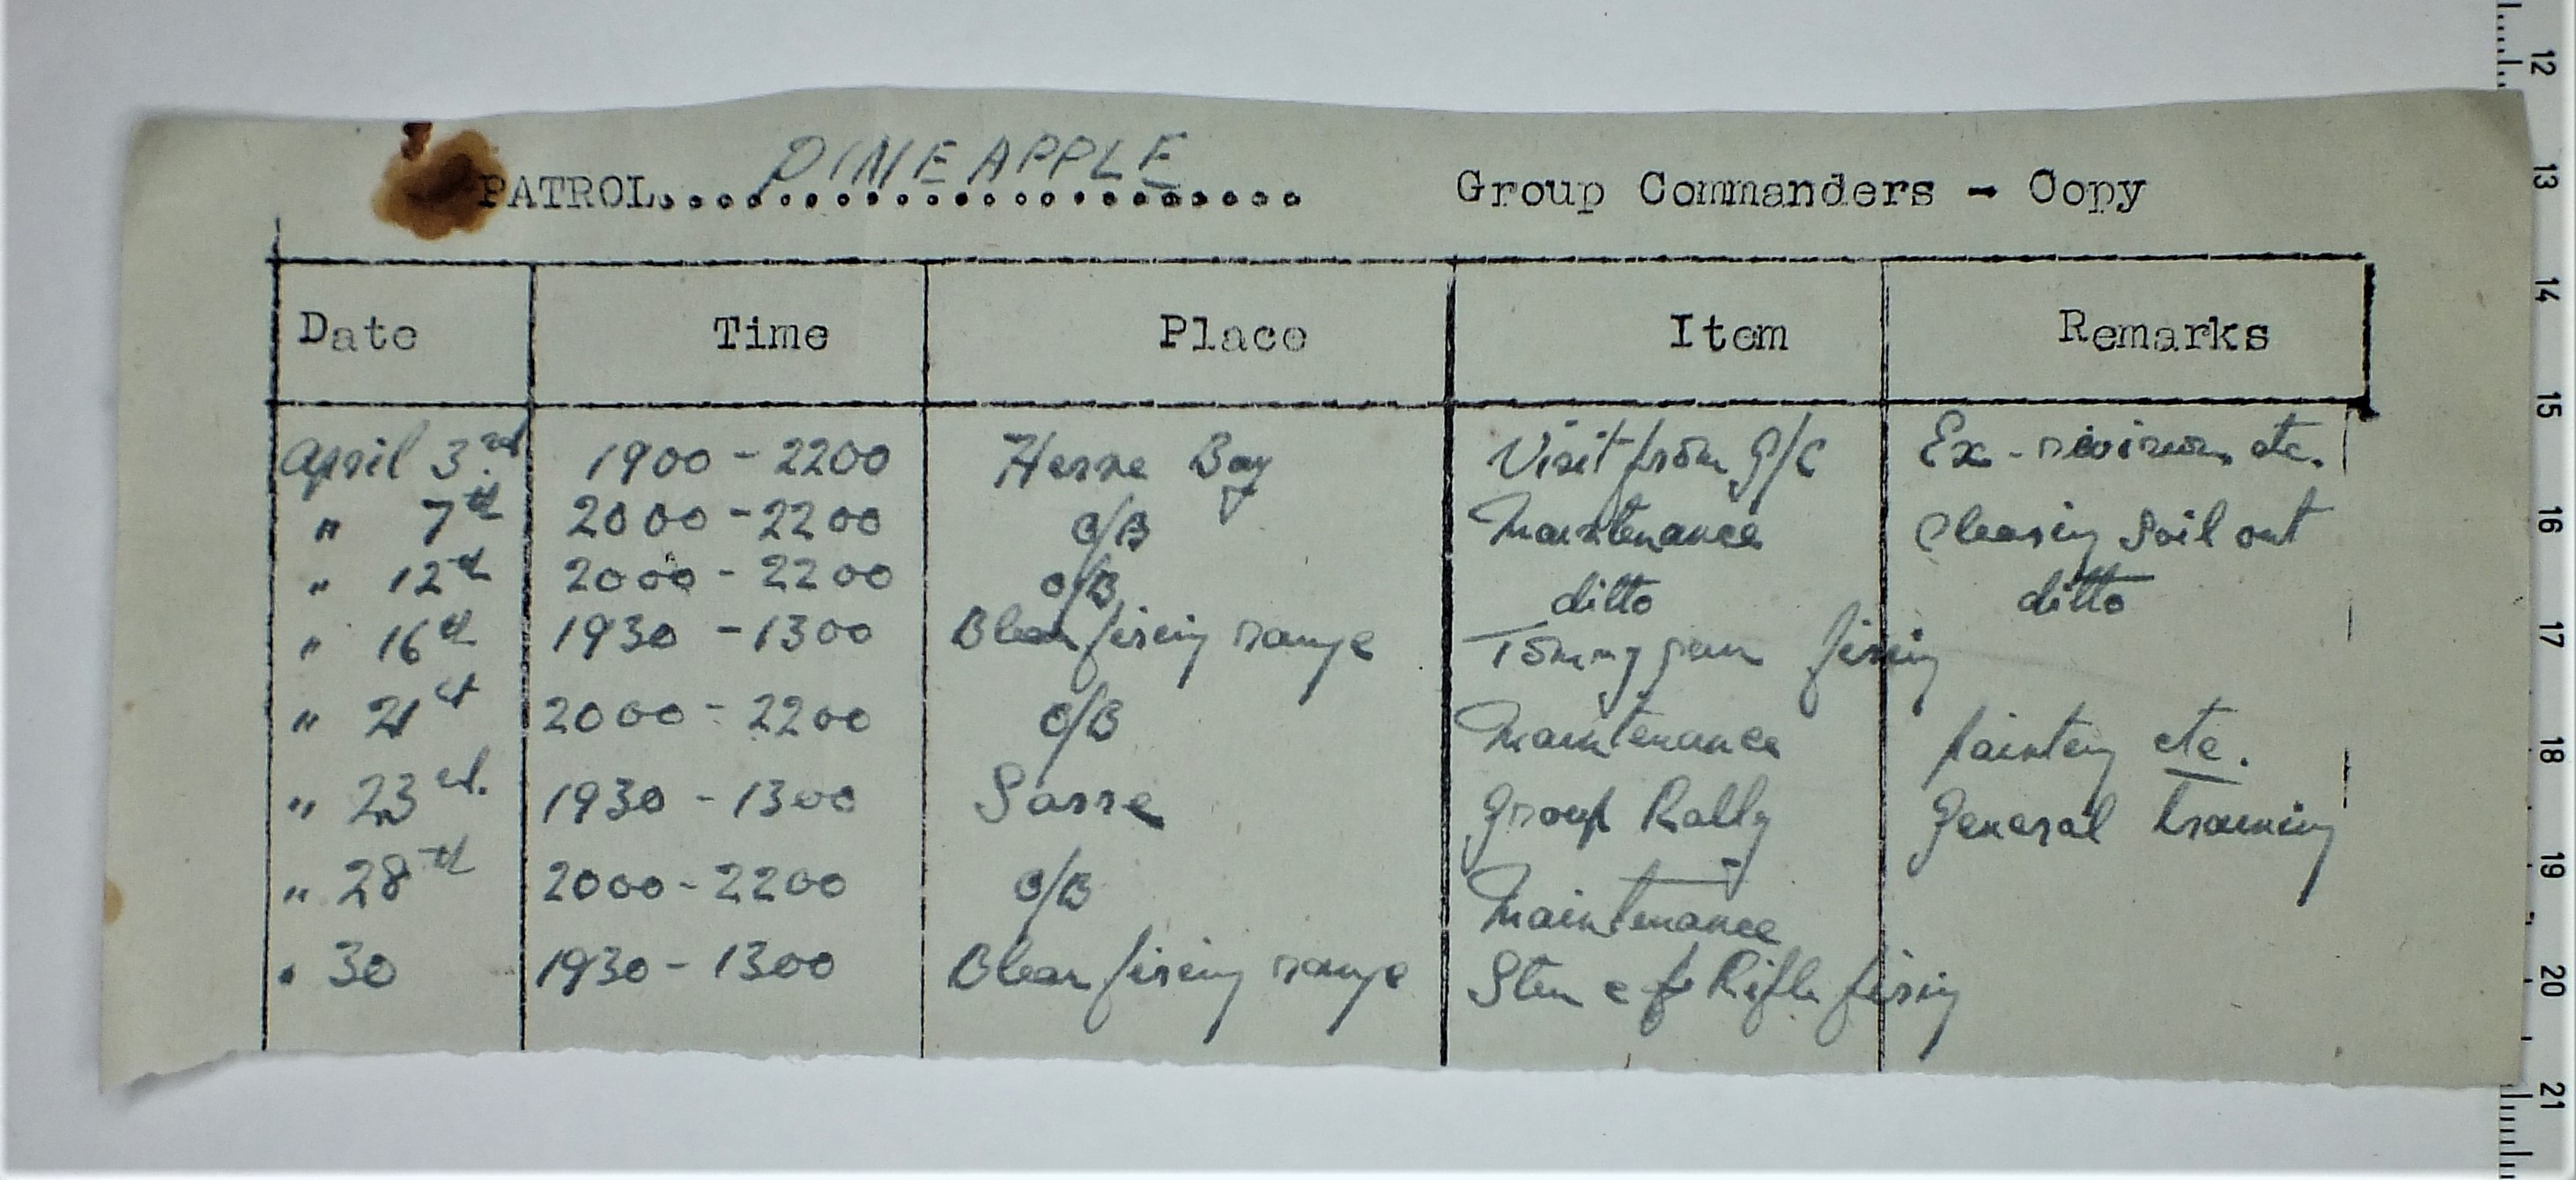 PATROL...................... PINEAPPLE Group Commanders - Copy
Date Time Place Item Remarks
April 3rd 1900 - 2200 Herne Bay Visit from G/C Ex - revision etc.
" 7th 2000 - 2200 O/B Maintenance Clearing soil out
" 12th 2000 - 2200 O/B ditto ditto
" 16th 1930 - 1300 Blean firing range Tommy gun firing
" 21st 2000 - 2200 O/B Maintenance painting etc.
" 23rd. 1930 - 1300 Sarre Group Rally General training
" 28th 2000 - 2200 O/B Maintenance
" 30 1930 - 1300 Blean firing range Sten Rifle firing
12
13
14
15
16
17
18
19
20
21